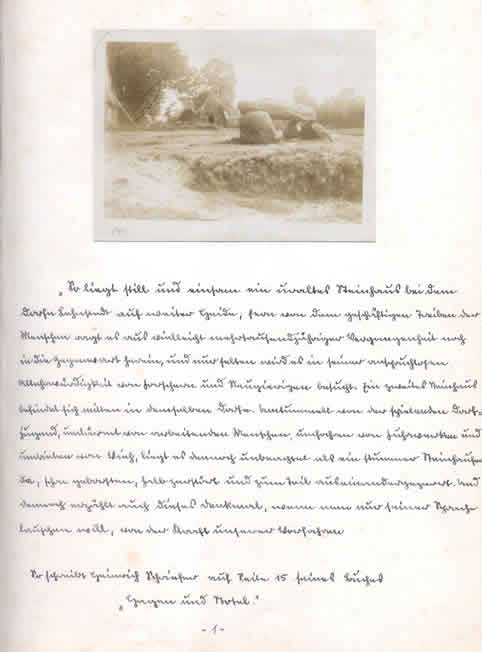 „So liegt still und einsam ein uraltes Steinhaus bei dem
Dorfe auf weiter Heide, fern von dem geschäftigen Treiben der
Menschen ragt es aus vielleicht mehrtausendjähriger Vergangenheit noch
in die Gegenwart herein, und nur selten wird es in seiner anspruchslosen
Altehrwürdigkeit von Forschern und Neugierigen besucht. Ein zweites Steinhaus
befindet sich mitten in demselben Dorfe. Umtummelt von der spielenden Dorf=
jugend, umlärmt von arbeitenden Menschen, umfahren von Fuhrwerken und
umtrieben von Vieh, liegt es dennoch als ein stummer Steinhaufen
da, schon geborsten, halb zerstört und zum Teil auseinandergezerrt. Und
dennoch erzählt auch dieses Denkmal, wenn man nur seiner Sprache
lauschen will, von der Kraft unserer Vorfahren
So schreibt Heinrich Schriefer auf Seite 15 seines Buches
„Hagen und Stotel."
- 1 -